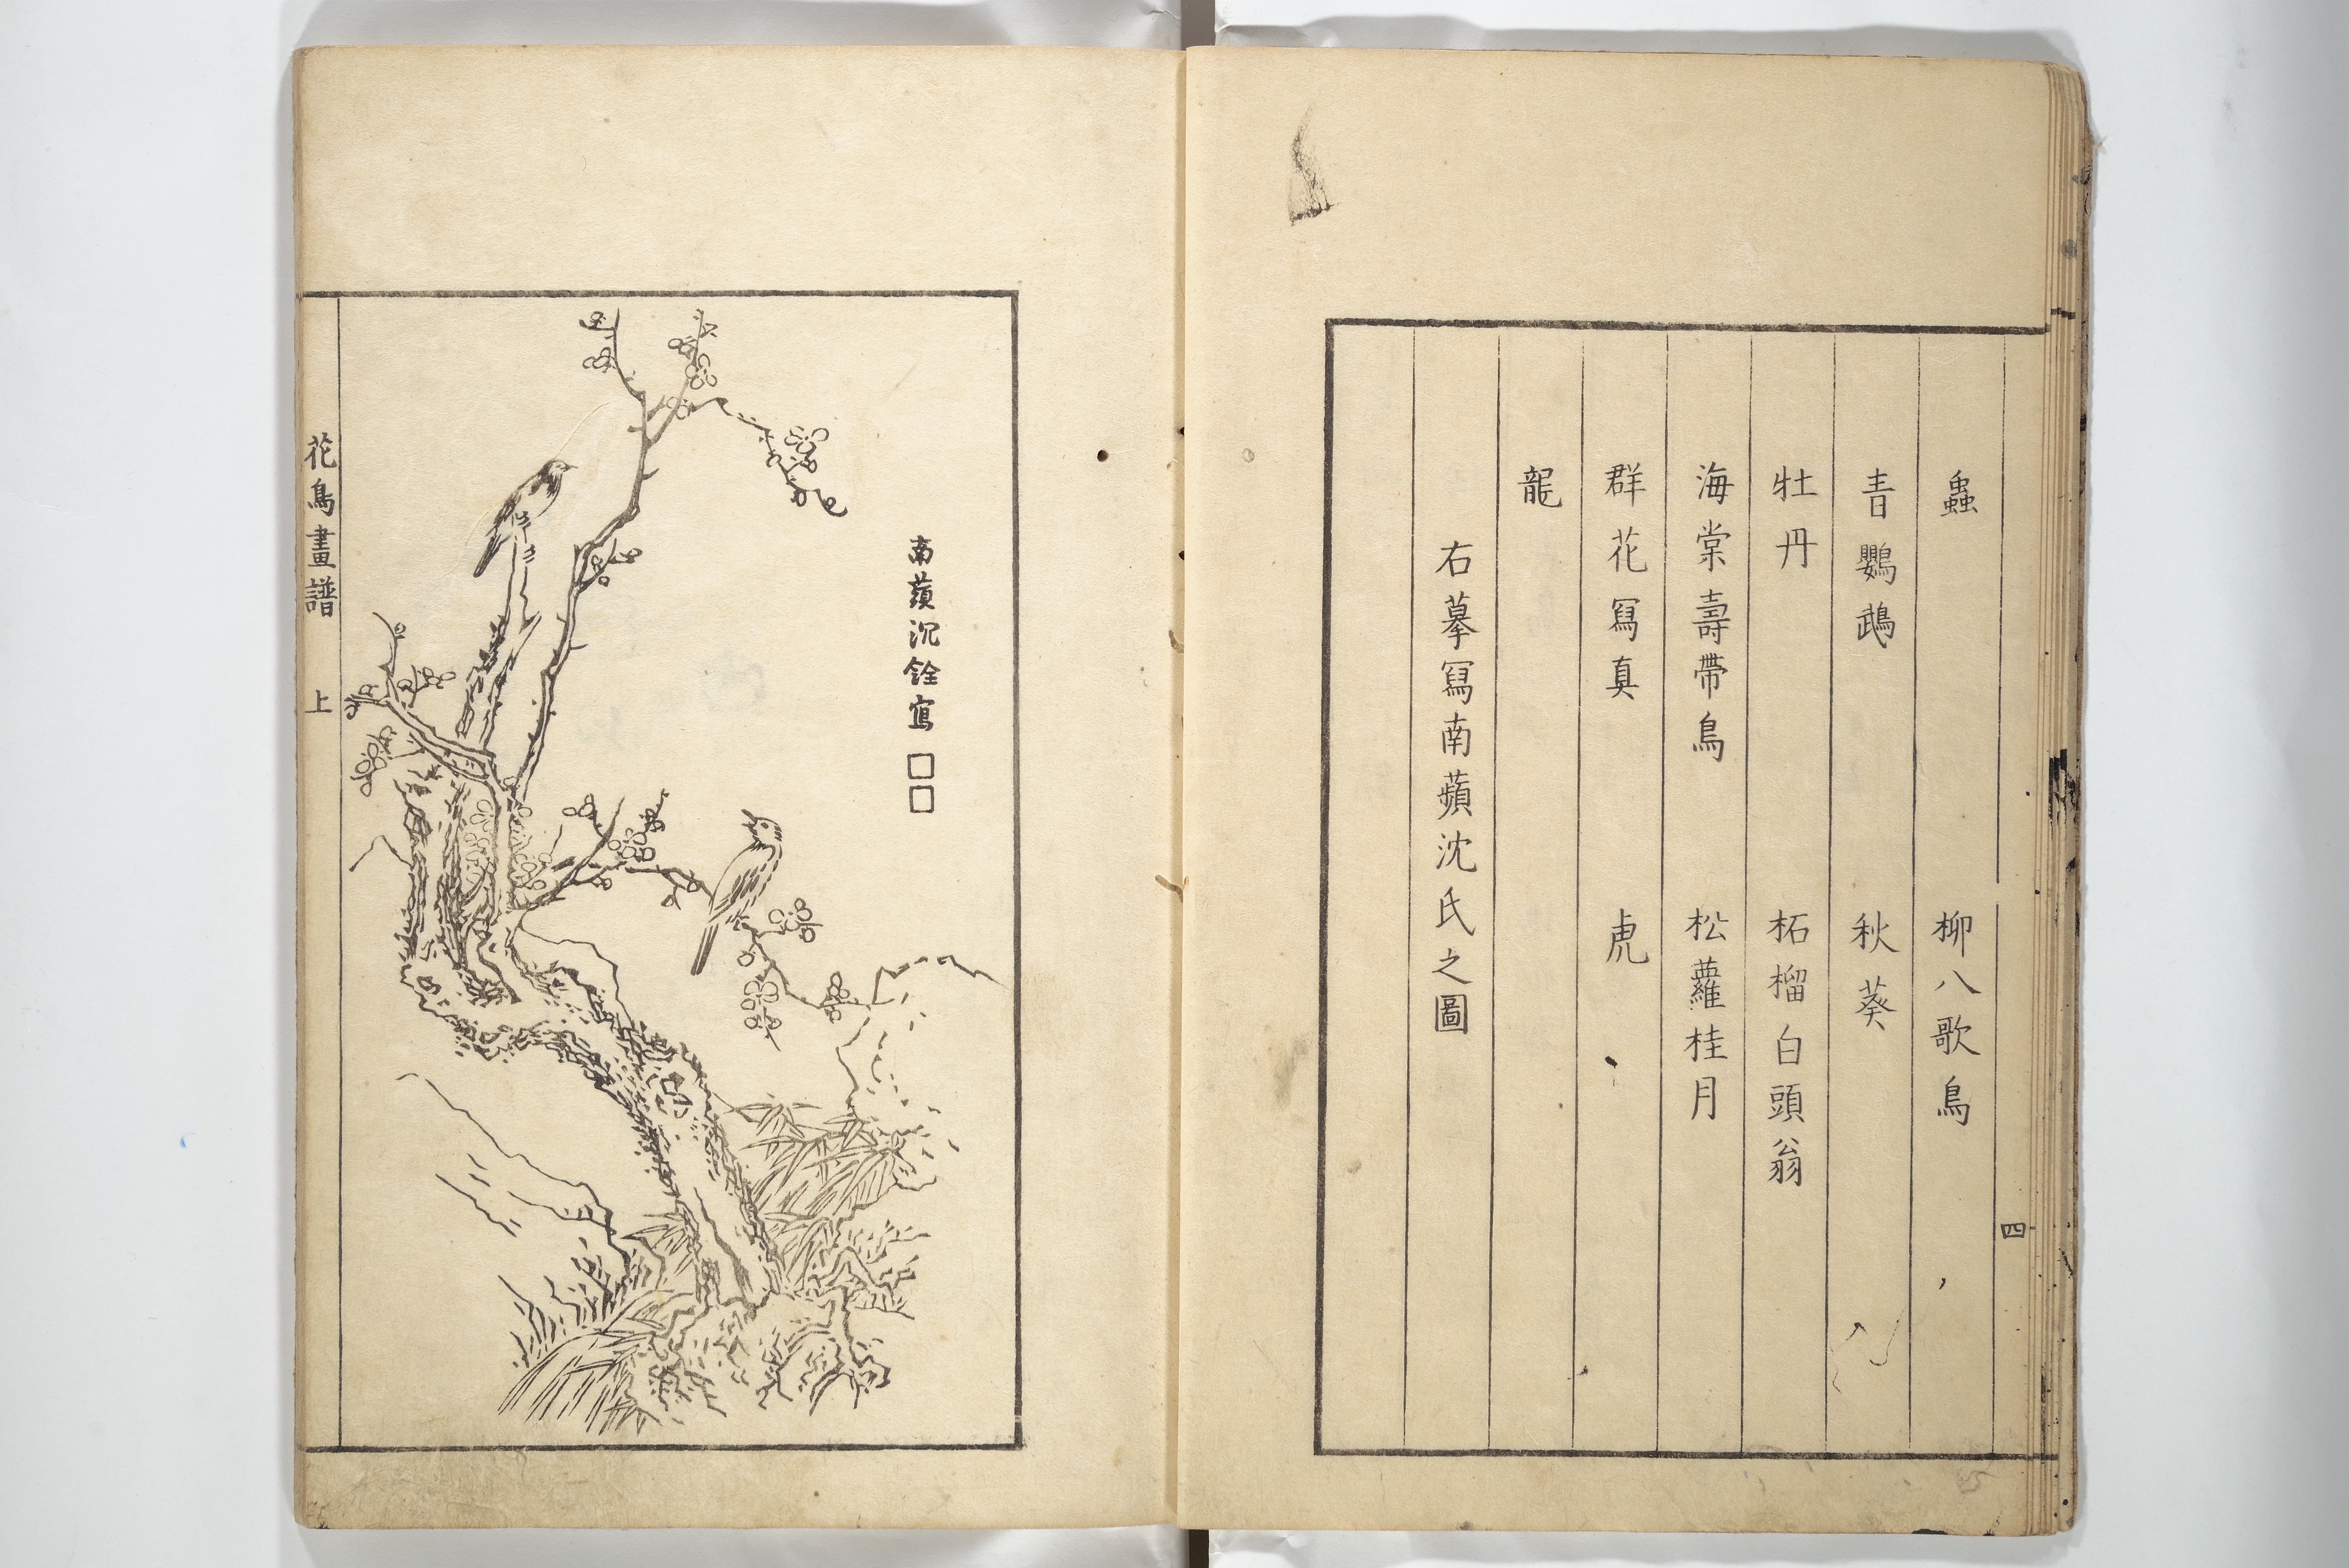 蟲　柳八歌鳥
青鸚鵡　秋葵
牡丹　柘榴白頭翁
海棠壽帶鳥　松蘿桂月
群花冩真　虎
龍
右摹冩南蘋沈氏之圖
四
南蘋沉銓寫□□
花鳥畫譜　上